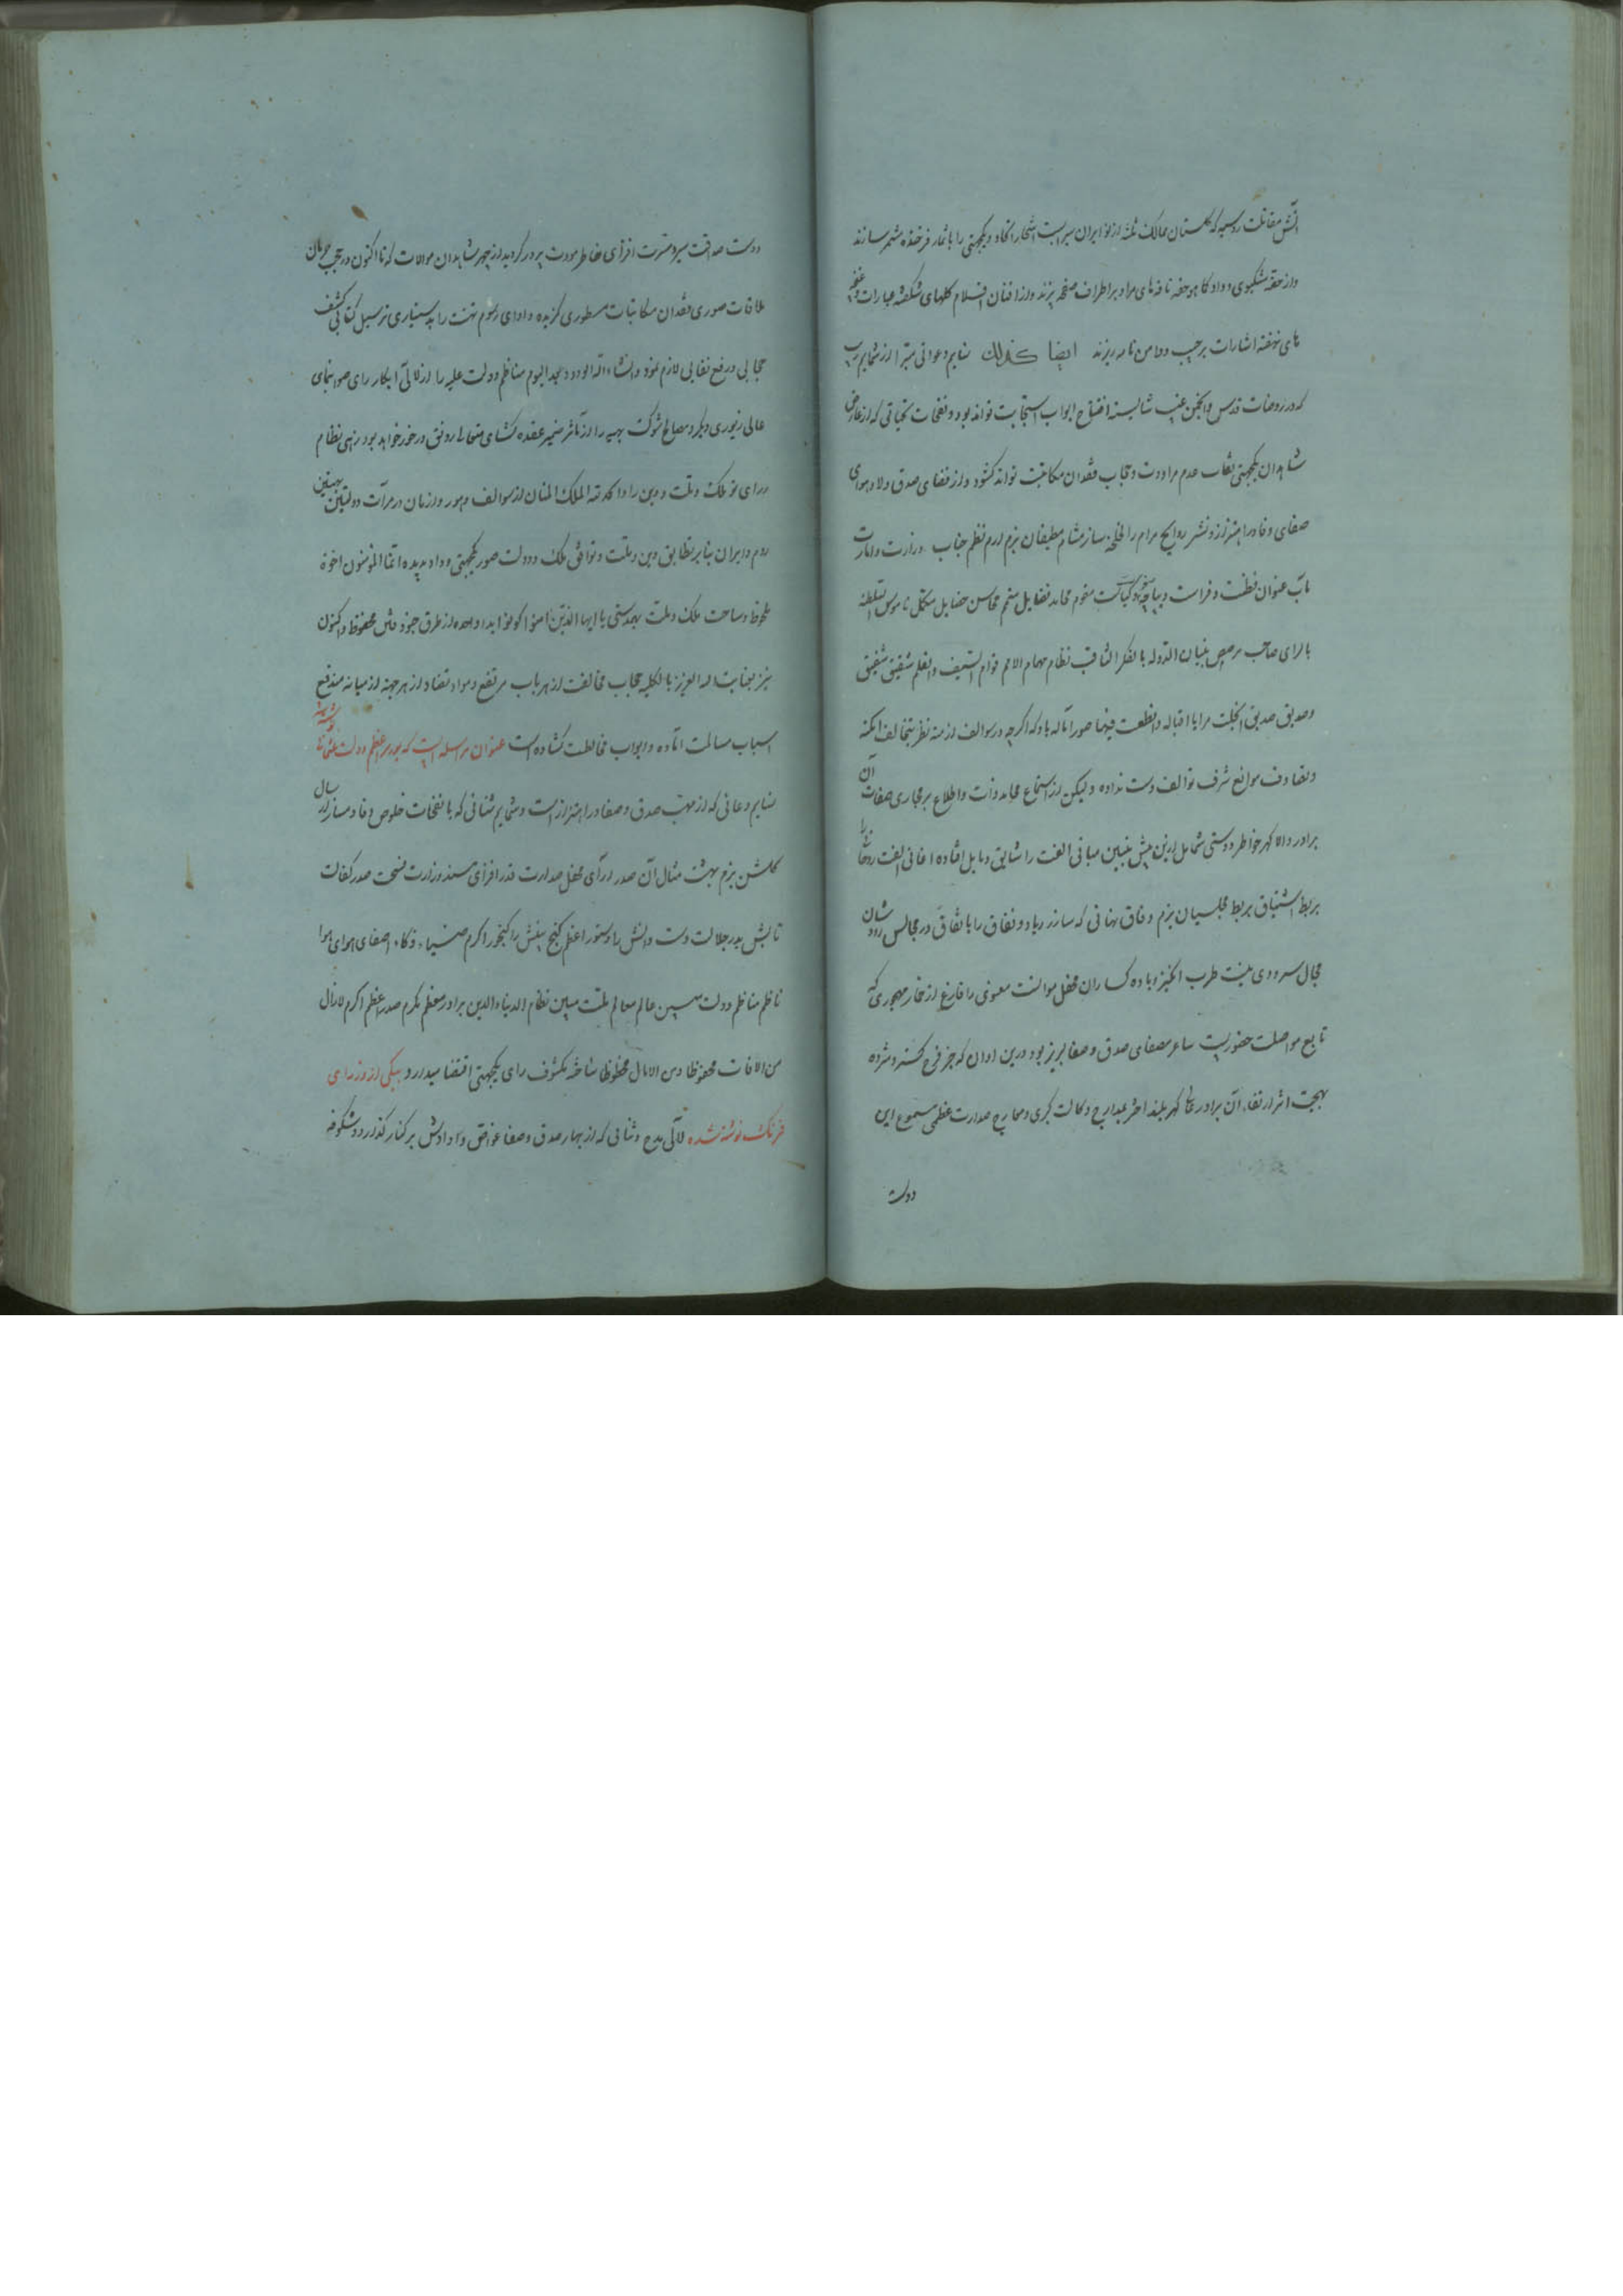 آتش مقاتلت روسیه که گلستان ممالک ثلثه از نو ایران سیرابست اشجار اتحاد و یکجهتی را باثمار فرخنده مثمر سازند
واز حقه مشکبوی وداد کاهو حقه نافه های مراد بر اطراف صفحه بیزند واز افنان اقلام گلهای شکفته عبارات وغنچه
های نهفته اشارات بر جیب ودامن نامه ریزند ایضا کذلک نسایم دعواتی مبرا از شمایم ریب
که در روضات قدس وانجمن غیب شایسته افتتاح ابواب استجابت تواند بود ونفحات تحیاتی که از عارض
شاهدان یکجهتی نقاب عدم مراودت وحجاب فقدان مکاتبت تواند کشود واز فضای صدق ولا وهوای
صفای وفا در اهتزاز ونشر روایح مرام را لخلخه ساز مشام مطیفان بزم ارم نظم جناب وزارت وامارت
مآب عنوان فطنت وفراست دیباچه کیاست مفخم محامد فضایل متمم محاسن خصایل مکمل ناموس السلطنه
بالرای صائب مرصص بنیان الدوله بالفکر الثاقب نظام مهام الامم قوام السیف والقلم شفیق شفیق
وصدیق صدیق انجلت مرایا اقباله وانطبعت فیها صور آماله باد که اگرچه در سوالف ازمنه نظر بتخالف امکنه
وتصادف موانع شرف توالف دست نداده ولیکن از استماع محامد ذات واطلاع بر مجاری صفات آن
برادر والا گهر خواطر دوستی شمایل ازین پیش بتبیین مبانی الفت را شایق ومایل افتاده اغانی الفت روحانی را
بربط اشتیاق بربط مجلسیان بزم وفاق نهانی که ساز ریا ودو نفاق را باتفاق در مجالس شان
مجال سرودی نیست طرب انگیز وباده کساران محفل موالفت معنوی را فارغ از خمار مهجوری که
تابع مواصلت حضوریست ساغر مصفای صدق وصفا لبریز بود درین اوان که خبر فرح گستر ومژده
بهجت اثر ارتقاء آن برادر عالی گهر بلند اختر بمدارج وکالت کبری ومعارج صدارت عظمی مسموع این
دولت
دولت صداقت سیر ومسرت افزای خاطر مودت پرور گردید از چهر شاهدان موالات که تا اکنون در حجب حرمان
ملاقات صوری فقدان مکاتبات مسطوری گزیده وادای رسوم تهنیت را به دستیاری ترسیل کتابی کشف
حجابی ورفع نقابی لازم نمود وانشاء الله الودود بعد الیوم مناظم دولت علیه را از لآلی ابکار رای صوابنمای
عالی زیوری دیگر ومصالح شوکت بهیه را از مآثر ضمیر عقده گشای متعالی رونق در خور خواهد بود زهی نظام
ورای نو ملک وملت ودین را والحمد لله الملک المنان از سوالف دهور وازمان در مرآت دولتین بهیتین
روم وایران بنابر تطابق دین وملت وتوافق ملک ودولت صور یکجهتی وداد پدیده انما المؤمنون اخوة
ملحوظ وساحت ملک وملت بهمدستی یا ایها الذین امنوا کونوا ید واحده از طرق جنود فتن محفوظ واکنون
نیز بعنایت اله العزیز بالکلیه حجاب مخالفت از هر باب مرتفع ومواد تضاد از هر جهته از میانه مندفع
اسباب مسالمت آماده وابواب مخالطت گشاده است عنوان مراسله ایست که بوزیر اعظم دولت عثمانی نوشته شد
نسایم دعائی که از مهب صدق وصفا در اهتزاز است وشمایم ثنائی که با نفحات خلوص وفا دمساز ارسال
گلشن بزم بهشت مثال آن صدر آرای محفل صدارت قدر افزای مسند وزارت فسحت صدر کفالت
تابش بدر جلالت دست دانش را دستور اعظم گنج بینش را گنجور اکرم ضیاء ذکاء اصفای هوای هوا
ناظم مناظم دولت مبین عالم معالم ملت مبین نظام الدنیا والدین برادر معظم مکرم صدر اعظم اکرم لازال
من الافات محفوظا ومن الامال محظوظا ساخته مکشوف رای یکجهتی اقتضا میدارد و بیکی از وزرای
فرنک نوشته شده لآلی مدح وثنائی که از بهار صدق وصفا غواص وادادش بر کنار گذارد وشکوفه